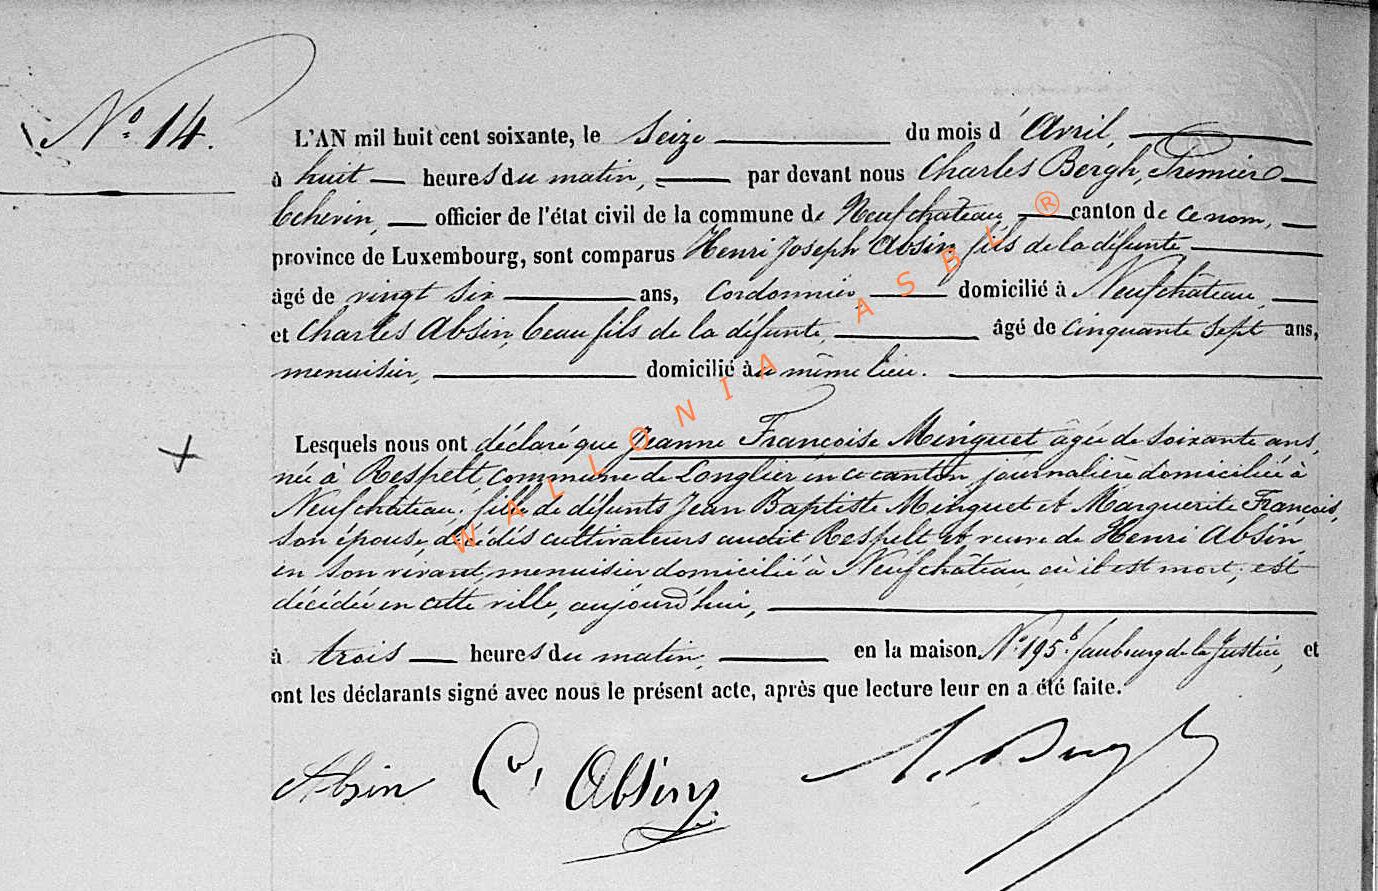 N° 14.
L'AN mil huit cent soixante, le Seize du mois d'Avril,
à huit heures du matin, par devant nous Charles Bergh, Premier
Echevin, officier de l'état civil de la commune de Neufchateau canton de ce nom,
province de Luxembourg, sont comparus Henri Joseph Absin fils de la défunte
âgé de vingt six ans, Cordonnier domicilié à Neufchâteau,
et Charles Absin, beau fils de la défunte, âgé de cinquante sept ans,
menuisier, domicilié au même lieu.
Lesquels nous ont déclaré que Jeanne Françoise Minguet âgée de soixante ans,
née à Respelt commune de Longlier en ce canton, journalière domiciliée à
Neufchâteau, fille de défunts Jean Baptiste Minguet et Marguerite François,
son épouse, décédés cultivateurs audit Respelt et veuve de Henri Absin,
en son vivant, menuisier domicilié à Neufchâteau, où il est mort, est
décédée en cette ville, aujourd'hui,
à trois heures du matin, en la maison N° 195 b. faubourg de la Justice, et
ont les déclarants signé avec nous le présent acte, après que lecture leur en a été faite.
Absin Ch Absin
WALLONIA ASBL ®